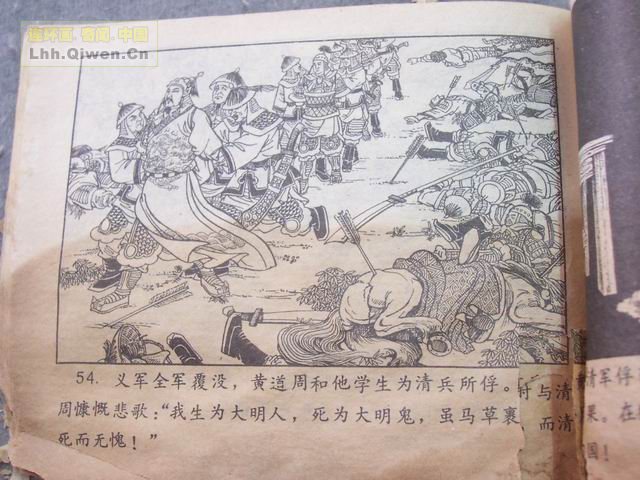 连环画.奇闻.中国
Lhh.Qiwen.Cn
54. 义军全军覆没，黄道周和他学生为清兵所俘。
周慷慨悲歌：“我生为大明人，死为大明鬼，虽马草裹，
死而无愧！”
村与清
而清
清军俘
果。在
国！